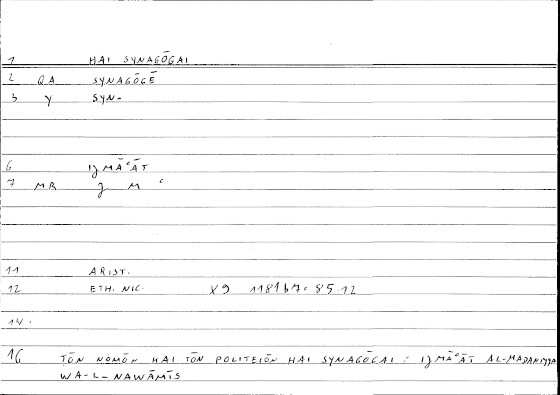 1 HAI SYNAGŌGAI
2 QA SYNAGŌGĒ
3 Y SYN-
6 IǦMĀʿĀT
7 MR Ǧ M ʿ
11 ARIST.
12 ETH. NIC. X9 1181b7: 85.12
14.
16 TŌN NOMŌN HAI TŌN POLITEIŌN HAI SYNAGŌGAI : IǦMĀʿĀT AL-MADANIYYA
WA-L-NAWĀMĪS